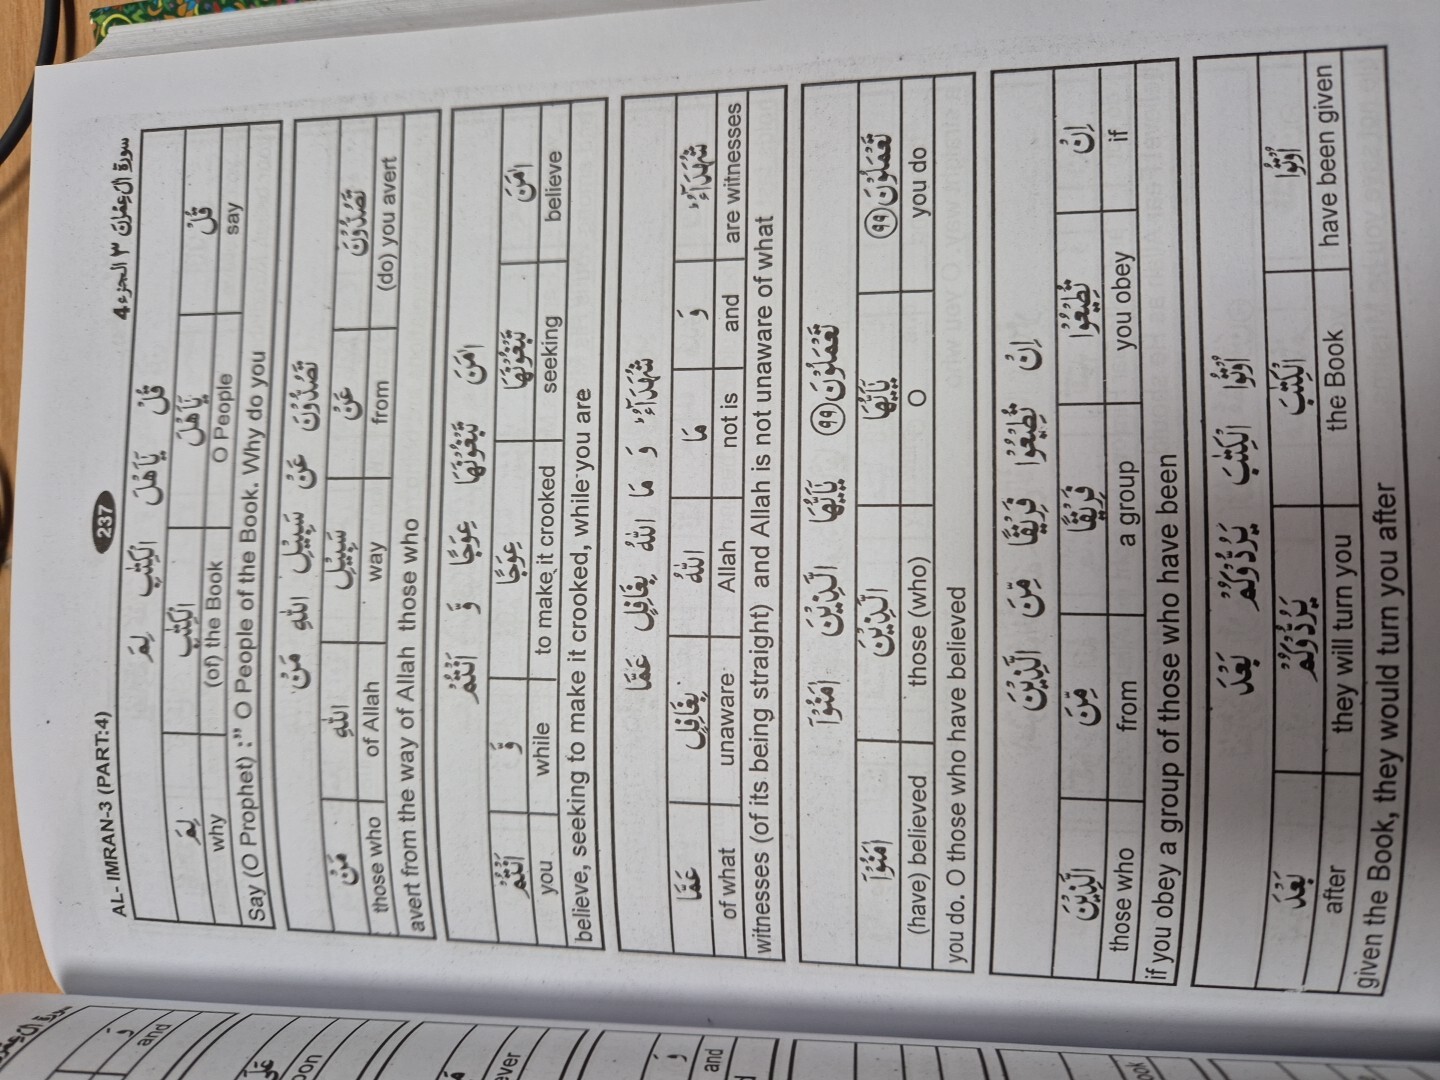 AL- IMRAN-3 (PART:4) 237 سورة اٰل عِمْرٰنَ ٣ الجزء 4
قُلْ يٰٓاَهْلَ الْكِتٰبِ لِمَ
قُلْ يٰٓاَهْلَ الْكِتٰبِ لِمَ
why (of) the Book O People say
Say (O Prophet) :" O People of the Book. Why do you
تَصُدُّوْنَ عَنْ سَبِيْلِ اللّٰهِ مَنْ
تَصُدُّوْنَ عَنْ سَبِيْلِ اللّٰهِ مَنْ
those who of Allah way from (do) you avert
avert from the way of Allah those who
اٰمَنَ تَبْغُوْنَهَا عِوَجًا وَّ اَنْتُمْ
اٰمَنَ تَبْغُوْنَهَا عِوَجًا وَّ اَنْتُمْ
you while to make it crooked seeking believe
believe, seeking to make it crooked, while you are
شُهَدَآءُ وَ مَا اللّٰهُ بِغَافِلٍ عَمَّا
شُهَدَآءُ وَ مَا اللّٰهُ بِغَافِلٍ عَمَّا
of what unaware Allah not is and are witnesses
witnesses (of its being straight) and Allah is not unaware of what
تَعْمَلُوْنَ ٩٩ يٰٓاَيُّهَا الَّذِيْنَ اٰمَنُوْٓا
تَعْمَلُوْنَ ٩٩ يٰٓاَيُّهَا الَّذِيْنَ اٰمَنُوْٓا
(have) believed those (who) O you do
you do. O those who have believed
اِنْ تُطِيْعُوْا فَرِيْقًا مِّنَ الَّذِيْنَ
اِنْ تُطِيْعُوْا فَرِيْقًا مِّنَ الَّذِيْنَ
those who from a group you obey if
if you obey a group of those who have been
اُوْتُوا الْكِتٰبَ يَرُدُّوْكُمْ بَعْدَ
اُوْتُوا الْكِتٰبَ يَرُدُّوْكُمْ بَعْدَ
after they will turn you the Book have been given
given the Book, they would turn you after
وَ
and
وَ
and